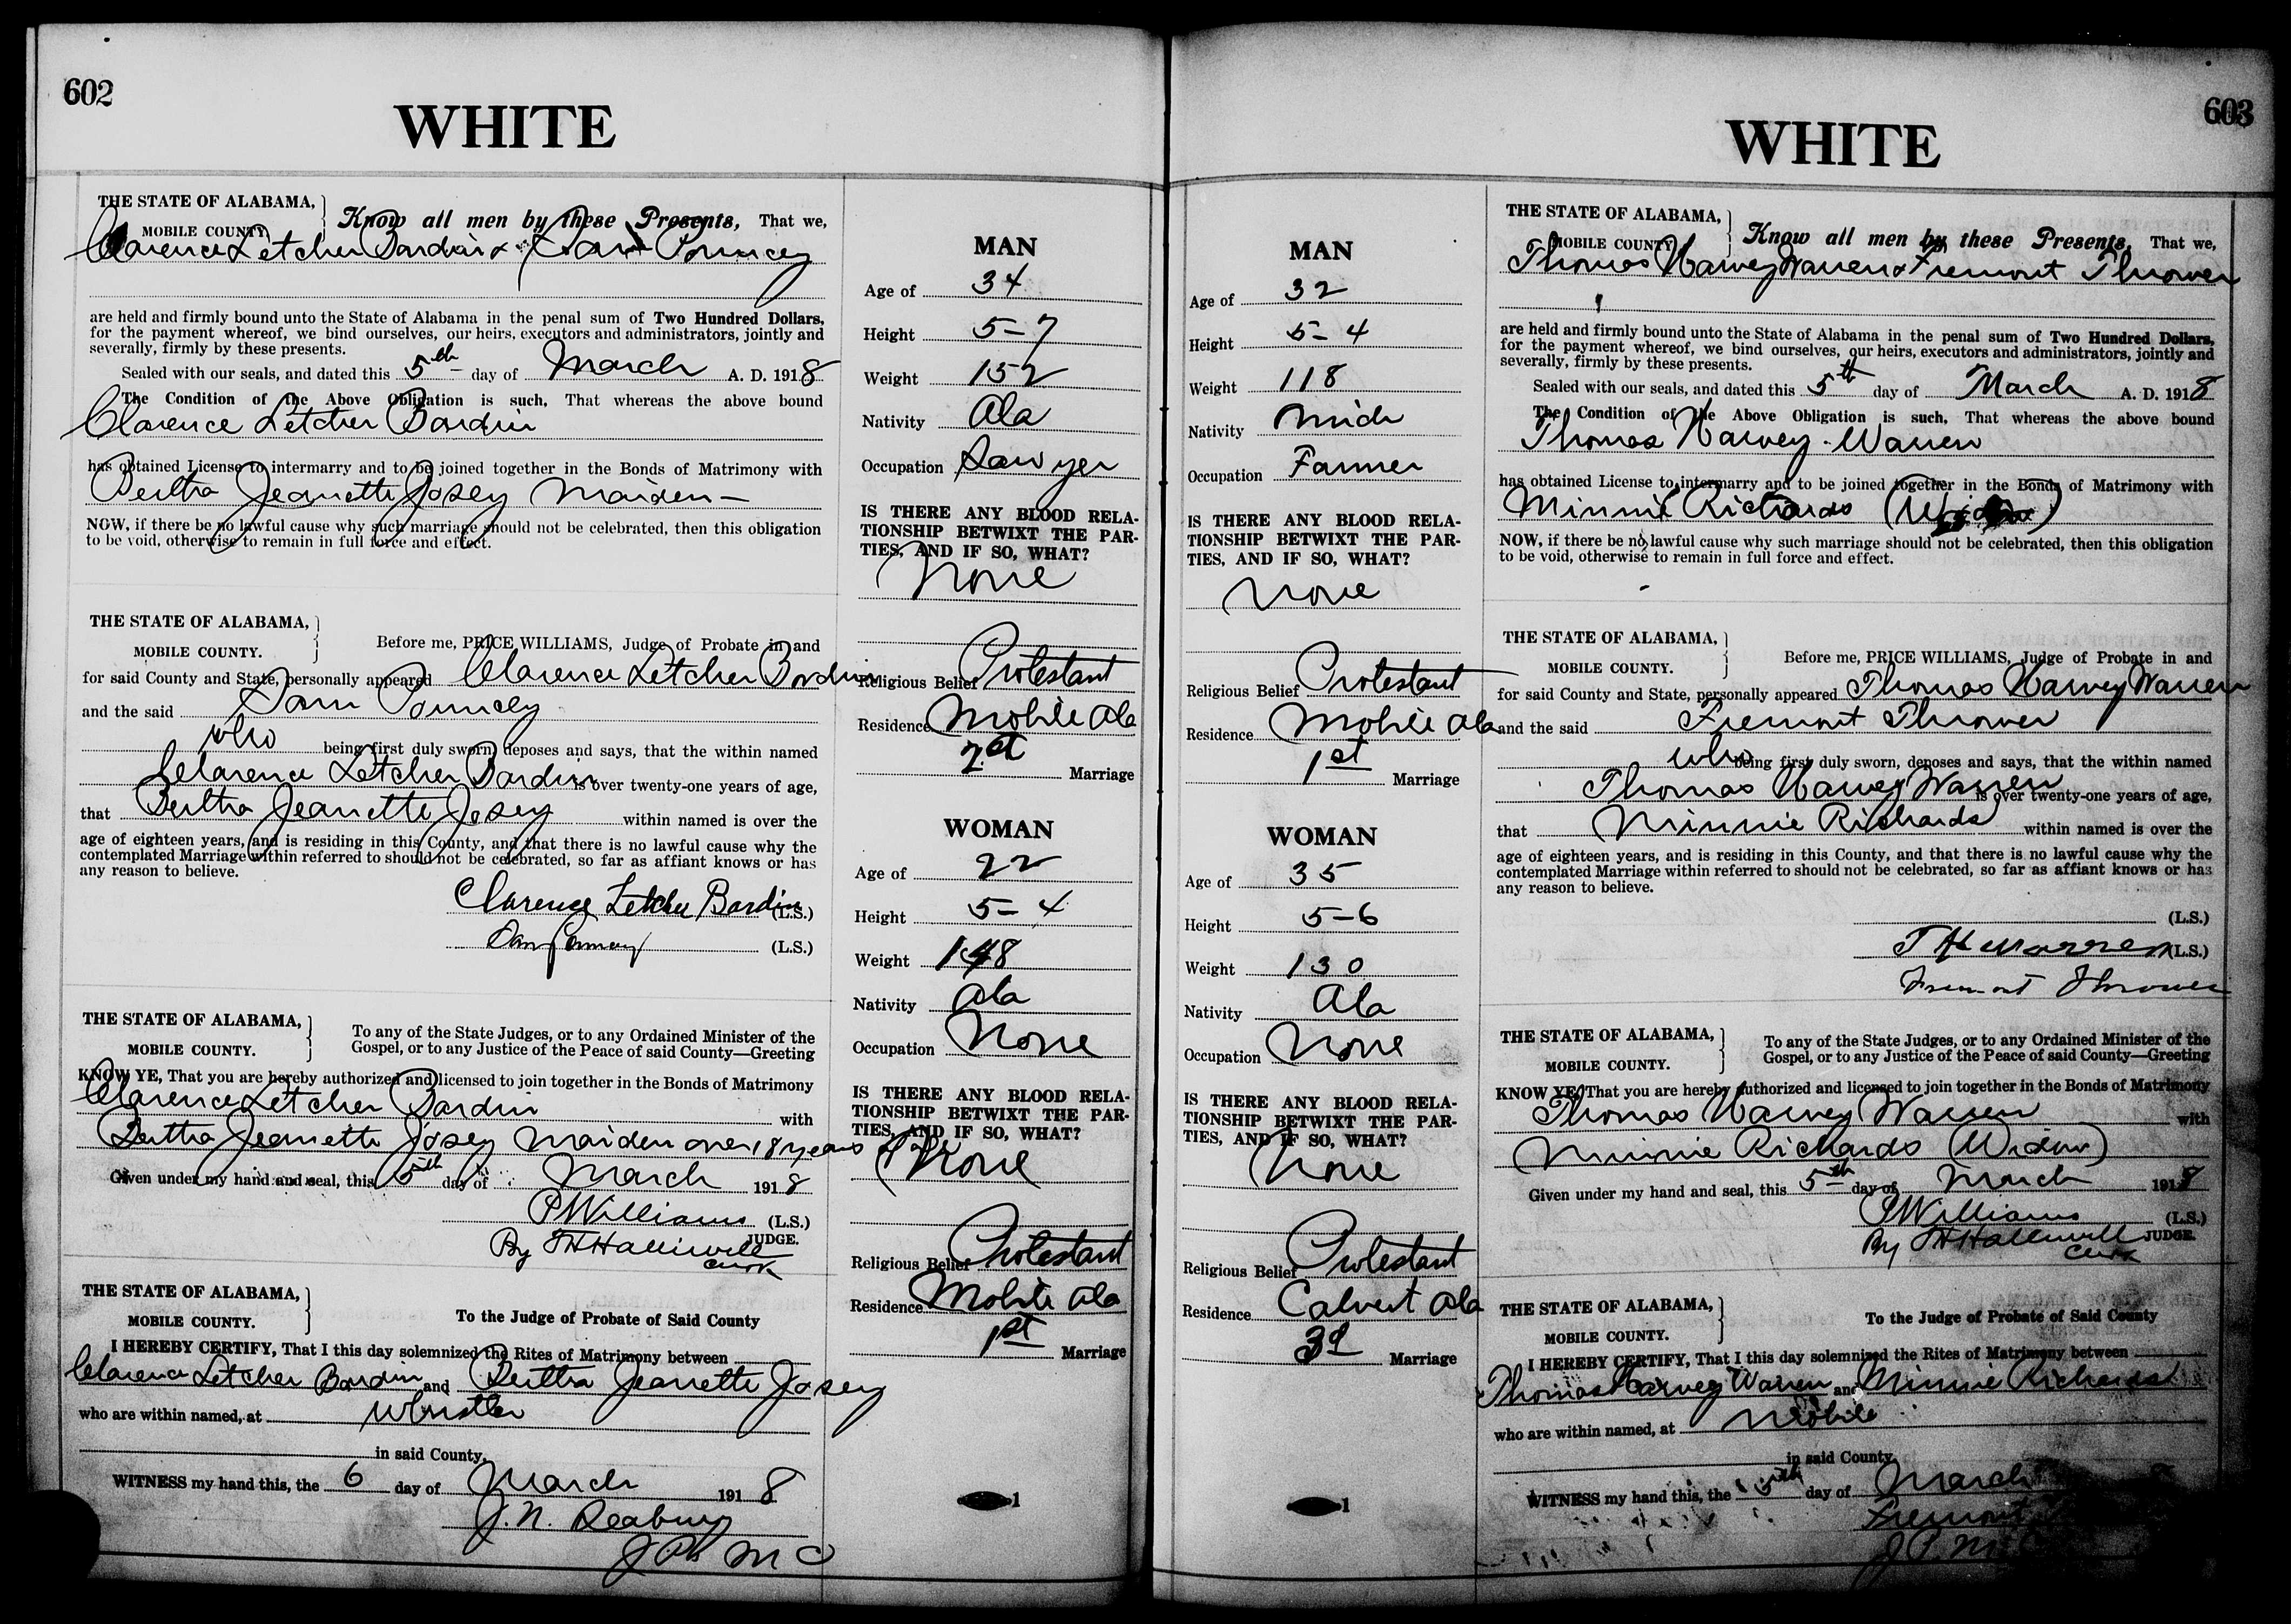 602
WHITE
THE STATE OF ALABAMA,
MOBILE COUNTY
Know all men by these Presents, That we,
Clarence Letcher Bardin & Dan Pouncey
are held and firmly bound unto the State of Alabama in the penal sum of Two Hundred Dollars,
for the payment whereof, we bind ourselves, our heirs, executors and administrators, jointly and
severally, firmly by these presents.
Sealed with our seals, and dated this 5th day of March A. D. 1918
The Condition of the Above Obligation is such, That whereas the above bound
Clarence Letcher Bardin
has obtained License to intermarry and to be joined together in the Bonds of Matrimony with
Bertha Jeanette Josey Maiden
NOW, if there be no lawful cause why such marriage should not be celebrated, then this obligation
to be void, otherwise to remain in full force and effect.
THE STATE OF ALABAMA,
MOBILE COUNTY.
Before me, PRICE WILLIAMS, Judge of Probate in and
for said County and State, personally appeared Clarence Letcher Bardin
and the said Dan Pouncey
who being first duly sworn, deposes and says, that the within named
Clarence Letcher Bardin is over twenty-one years of age,
that Bertha Jeanette Josey within named is over the
age of eighteen years, and is residing in this County, and that there is no lawful cause why the
contemplated Marriage within referred to should not be celebrated, so far as affiant knows or has
any reason to believe.
Clarence Letcher Bardin (L.S.)
Dan Pouncey (L.S.)
THE STATE OF ALABAMA,
MOBILE COUNTY.
To any of the State Judges, or to any Ordained Minister of the
Gospel, or to any Justice of the Peace of said County—Greeting
KNOW YE, That you are hereby authorized and licensed to join together in the Bonds of Matrimony
Clarence Letcher Bardin with
Bertha Jeanette Josey Maiden over 18 years of age
Given under my hand and seal, this 5th day of March 1918
PWilliams (L.S.)
JUDGE.
By TH Halliwell
Clerk
THE STATE OF ALABAMA,
MOBILE COUNTY.
To the Judge of Probate of Said County
I HEREBY CERTIFY, That I this day solemnized the Rites of Matrimony between
Clarence Letcher Bardin and Bertha Jeanette Josey
who are within named, at Whistler
in said County,
WITNESS my hand this, the 6 day of March 1918
J. N. Seabury
J P M C
MAN
Age of 34
Height 5-7
Weight 152
Nativity Ala
Occupation Sawyer
IS THERE ANY BLOOD RELA-
TIONSHIP BETWIXT THE PAR-
TIES, AND IF SO, WHAT?
None
Religious Belief Protestant
Residence Mobile Ala
Marriage
WOMAN
Age of 22
Height 5-4
Weight 148
Nativity Ala
Occupation None
IS THERE ANY BLOOD RELA-
TIONSHIP BETWIXT THE PAR-
TIES, AND IF SO, WHAT?
None
Religious Belief Protestant
Residence Mobile Ala
1st Marriage
1
603
WHITE
MAN
Age of 32
Height 5-4
Weight 118
Nativity Mich
Occupation Farmer
IS THERE ANY BLOOD RELA-
TIONSHIP BETWIXT THE PAR-
TIES, AND IF SO, WHAT?
None
Religious Belief Protestant
Residence Mobile Ala
1st Marriage
WOMAN
Age of 35
Height 5-6
Weight 130
Nativity Ala
Occupation None
IS THERE ANY BLOOD RELA-
TIONSHIP BETWIXT THE PAR-
TIES, AND IF SO, WHAT?
None
Religious Belief Protestant
Residence Calvert Ala
3d Marriage
1
THE STATE OF ALABAMA,
MOBILE COUNTY
Know all men by these Presents, That we,
Thomas Harvey Warren & Fremont Thrower
are held and firmly bound unto the State of Alabama in the penal sum of Two Hundred Dollars,
for the payment whereof, we bind ourselves, our heirs, executors and administrators, jointly and
severally, firmly by these presents.
Sealed with our seals, and dated this 5th day of March A. D. 1918
The Condition of the Above Obligation is such, That whereas the above bound
Thomas Harvey Warren
has obtained License to intermarry and to be joined together in the Bonds of Matrimony with
Minnie Richards (Widow)
NOW, if there be no lawful cause why such marriage should not be celebrated, then this obligation
to be void, otherwise to remain in full force and effect.
THE STATE OF ALABAMA,
MOBILE COUNTY.
Before me, PRICE WILLIAMS, Judge of Probate in and
for said County and State, personally appeared Thomas Harvey Warren
and the said Fremont Thrower
who being first duly sworn, deposes and says, that the within named
Thomas Harvey Warren is over twenty-one years of age,
that Minnie Richards within named is over the
age of eighteen years, and is residing in this County, and that there is no lawful cause why the
contemplated Marriage within referred to should not be celebrated, so far as affiant knows or has
any reason to believe.
(L.S.)
T H Warren (L.S.)
Fremont Thrower
THE STATE OF ALABAMA,
MOBILE COUNTY.
To any of the State Judges, or to any Ordained Minister of the
Gospel, or to any Justice of the Peace of said County—Greeting
KNOW YE, That you are hereby authorized and licensed to join together in the Bonds of Matrimony
Thomas Harvey Warren with
Minnie Richards (Widow)
Given under my hand and seal, this 5th day of March 1918
PWilliams (L.S.)
By TH Halliwell JUDGE.
Clerk
THE STATE OF ALABAMA,
MOBILE COUNTY.
To the Judge of Probate of Said County
I HEREBY CERTIFY, That I this day solemnized the Rites of Matrimony between
Thomas Harvey Warren and Minnie Richards
who are within named, at Mobile
in said County,
WITNESS my hand this, the 5th day of March
Fremont
J P M